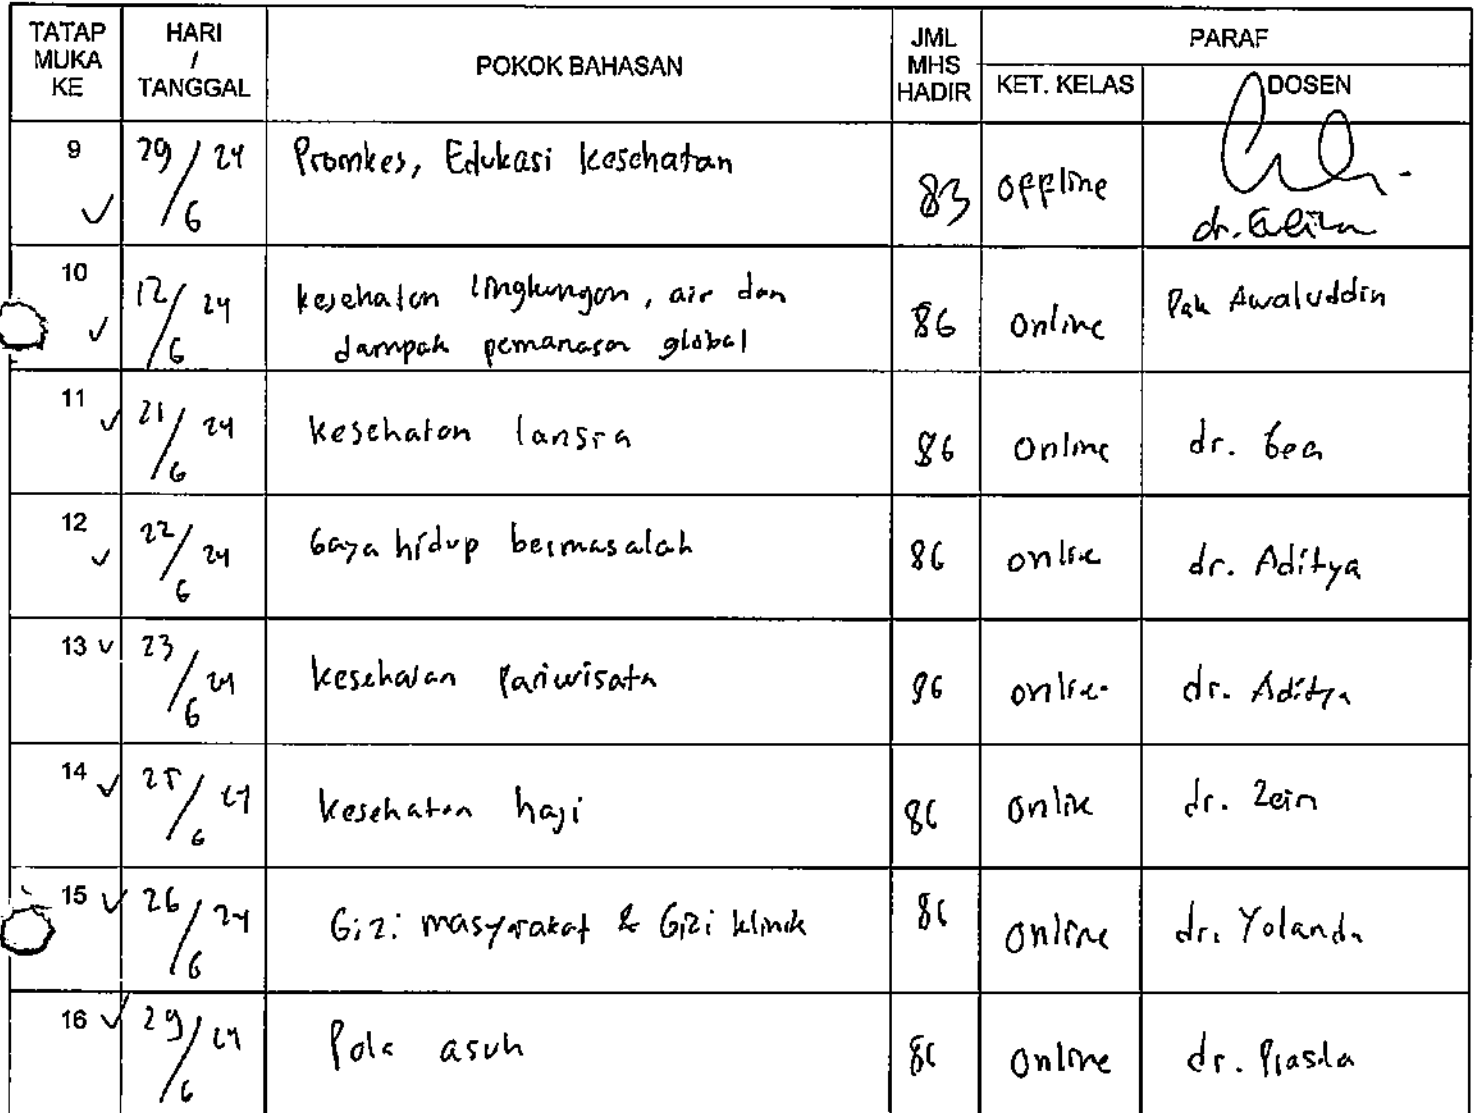 TATAP MUKA KE
HARI / TANGGAL
POKOK BAHASAN
JML MHS HADIR
PARAF
KET. KELAS
DOSEN
9 29/6 24 Promkes, Edukasi kesehatan 83 offline
dr.
10 12/6 24 kesehatan lingkungan, air dan 86 online Pak Awaluddin
dampak pemanasan global
11 21/6 24 kesehatan lansia 86 online dr. Gea
12 22/6 24 Gaya hidup bermasalah 86 online dr. Aditya
13 23/6 24 kesehatan pariwisata 86 online dr. Aditya
14 25/6 24 kesehatan haji 86 online dr. Zein
15 26/6 24 Gizi masyarakat & Gizi klinik 86 online dr. Yolanda
16 29/6 24 Pola asuh 86 online dr.